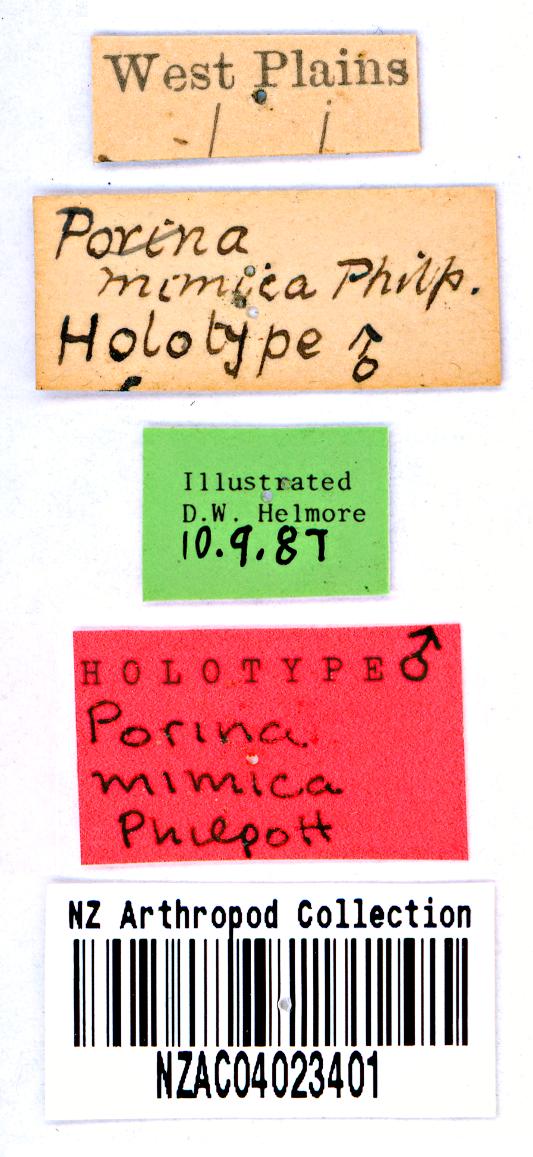 West Plains
Porina
mimica Philp.
Holotype ♂
Illustrated
D.W. Helmore
10.9.87
HOLOTYPE ♂
Porina
mimica
Philpott
NZ Arthropod Collection
NZAC04023401